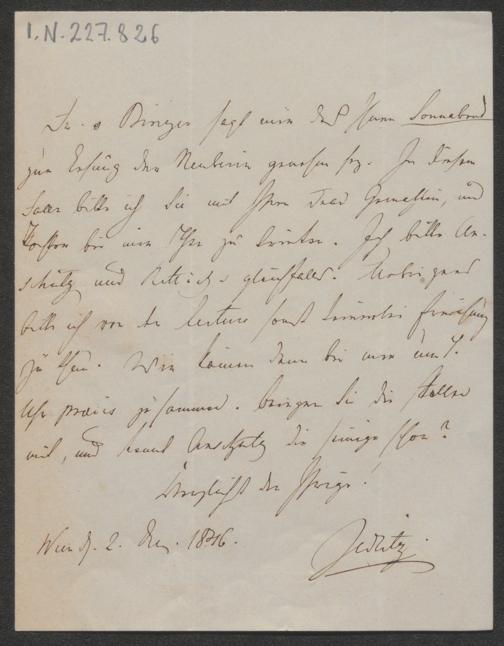 I.N. 227.826
Dr. Biringer sagt mir daß Ihnen Sonnabend
zur Lesung der Neuberin genehm sey. In diesem
Falle bitte ich Sie mit Ihrer Frau Gemahlin, und
bei mir Thee zu trinken. Ich bitte An-
schütz und Rettichs gleichfalls. Uebrigens
bitte ich von der Lecture sonst keinerlei Erwähnung
zu thun. Wir kämen dann bei mir um 7.
Uhr precis zusammen. bringen Sie die Rolle
mit, und kennt Anschütz die seinige schon?
Herzlichst der Ihrige!
Wien d. 2. 1846.
Zedlitz